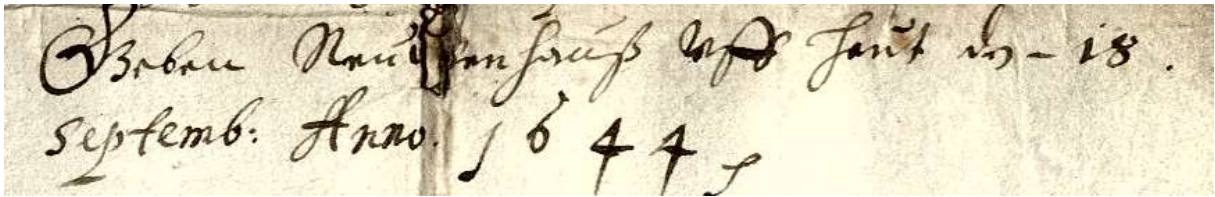 Geben Neu enhauß Vff heut dn – 18.
septemb: Anno. 1644